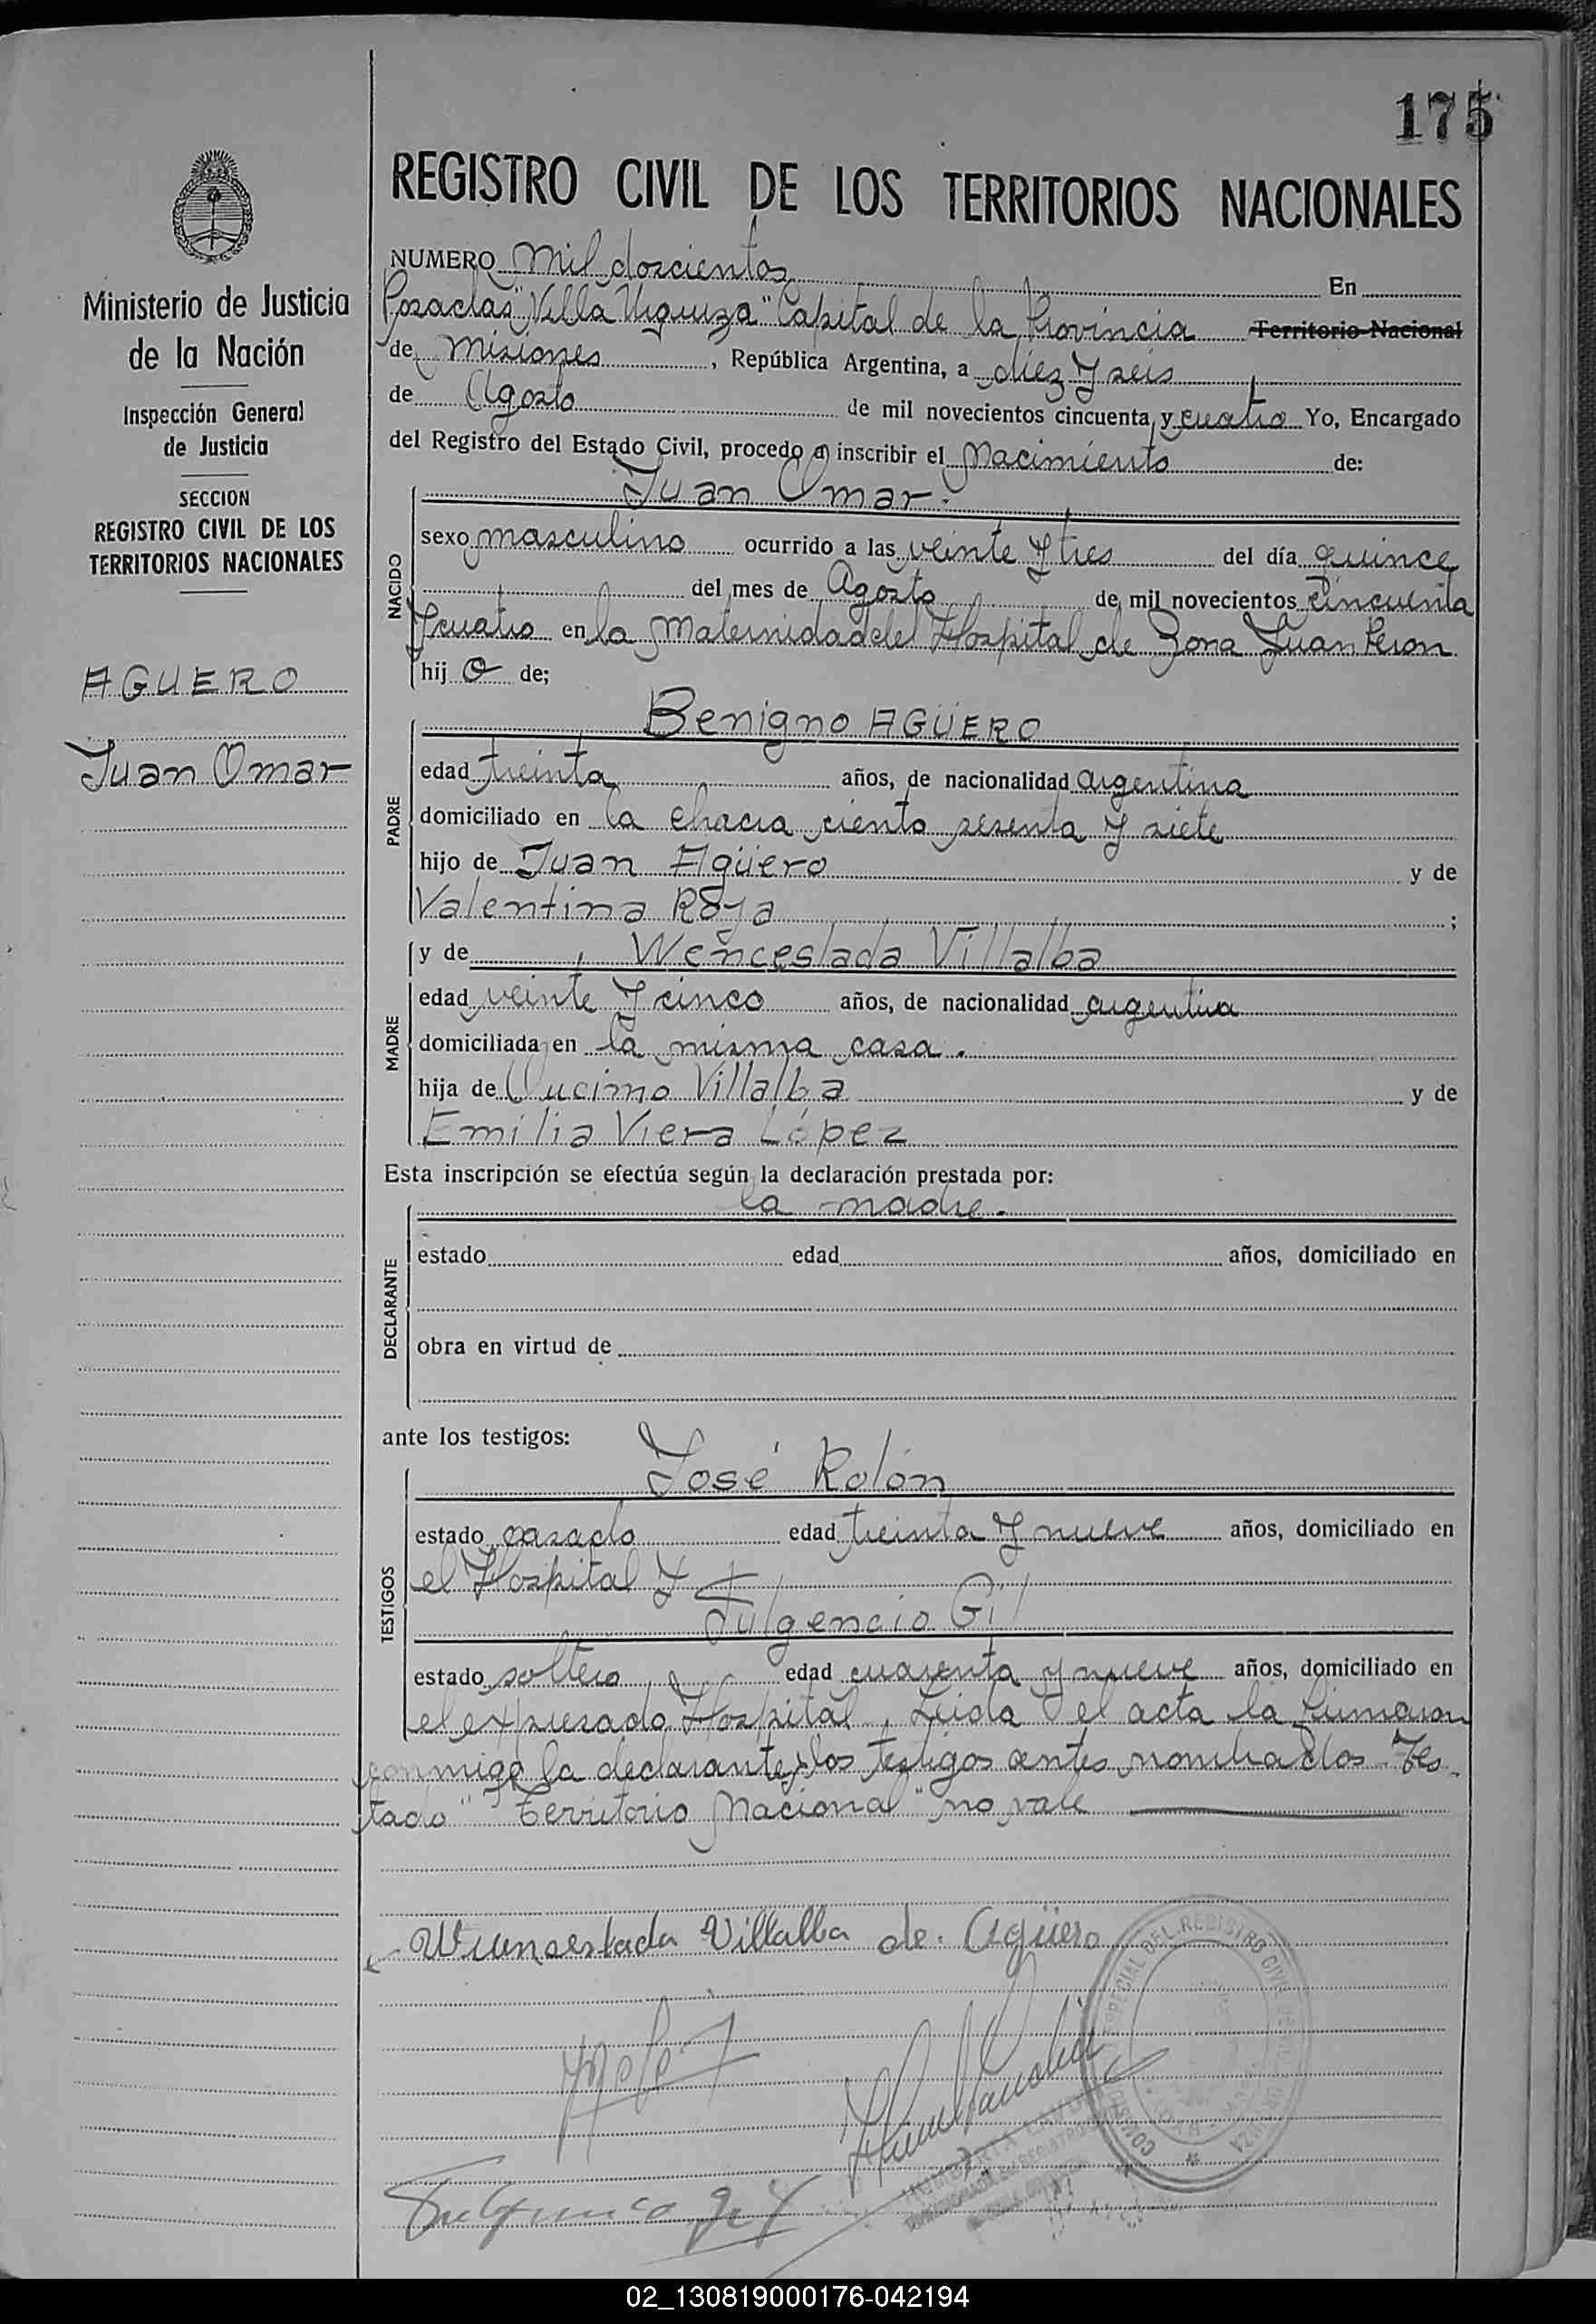 175
REGISTRO CIVIL DE LOS TERRITORIOS NACIONALES
Ministerio de Justicia
de la Nación
Inspección General
de Justicia
SECCION
REGISTRO CIVIL DE LOS
TERRITORIOS NACIONALES
AGUERO
Juan Omar
NUMERO mil doscientos En
Posadas "Villa Urquiza" Capital de la Provincia Territorio Nacional
de Misiones, República Argentina, a diez y seis
de Agosto de mil novecientos cincuenta y cuatro Yo, Encargado
del Registro del Estado Civil, procedo a inscribir el Nacimiento de:
NACIDO
Juan Omar.
sexo masculino ocurrido a las veinte y tres del día quince
del mes de Agosto de mil novecientos cincuenta
y cuatro en la Maternidad del Hospital de Zona Juan Peron
hijo de;
PADRE
Benigno AGÜERO
edad treinta años, de nacionalidad argentina
domiciliado en la chacra ciento sesenta y siete
hijo de Juan Agüero y de
Valentina Roja;
MADRE
y de Wenceslada Villalba
edad veinte y cinco años, de nacionalidad argentina
domiciliada en la misma casa.
hija de Villalba y de
Emilia Viera López
Esta inscripción se efectúa según la declaración prestada por:
DECLARANTE
la madre.
estado edad años, domiciliado en
obra en virtud de
ante los testigos:
TESTIGOS
José Rolón
estado casado edad treinta y nueve años, domiciliado en
el Hospital y
Fulgencio Gil
estado soltero edad cuarenta y nueve años, domiciliado en
el expresado Hospital. Leida el acta la firmaron
conmigo la declarante y los testigos antes nombrados. Tes-
tado "Territorio Nacional" no vale
Villalba de Agüero
DEL REGISTRO CIVIL
02_130819000176-042194